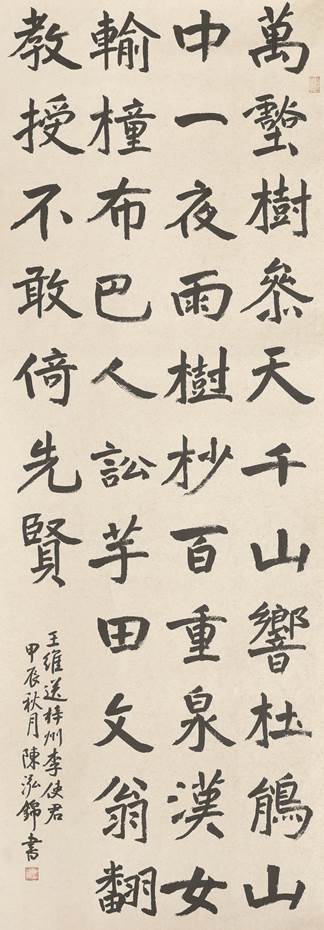 萬壑樹參天千山響杜鵑山
中一夜雨樹杪百重泉漢女
輸橦布巴人訟芋田文翁翻
教授不敢倚先賢
王維送梓州李使君
甲辰秋月陳泓錦書